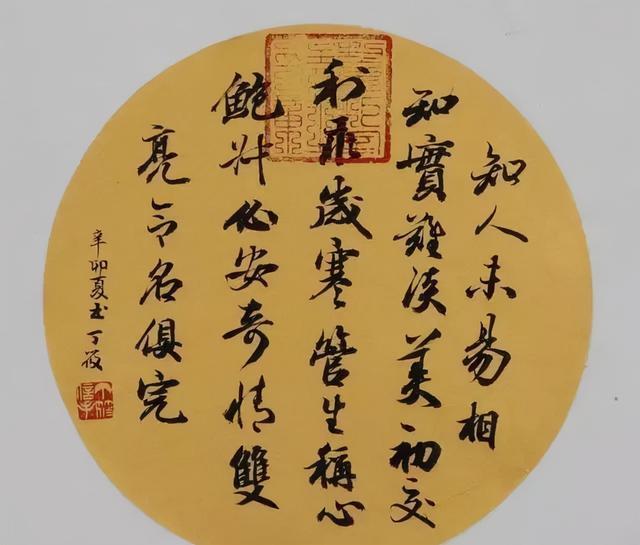 知人未易相
知實難淡美初交
利乖歲寒管生稱心
鮑叔必安奇情雙
亮令名俱完
辛卯夏书丁